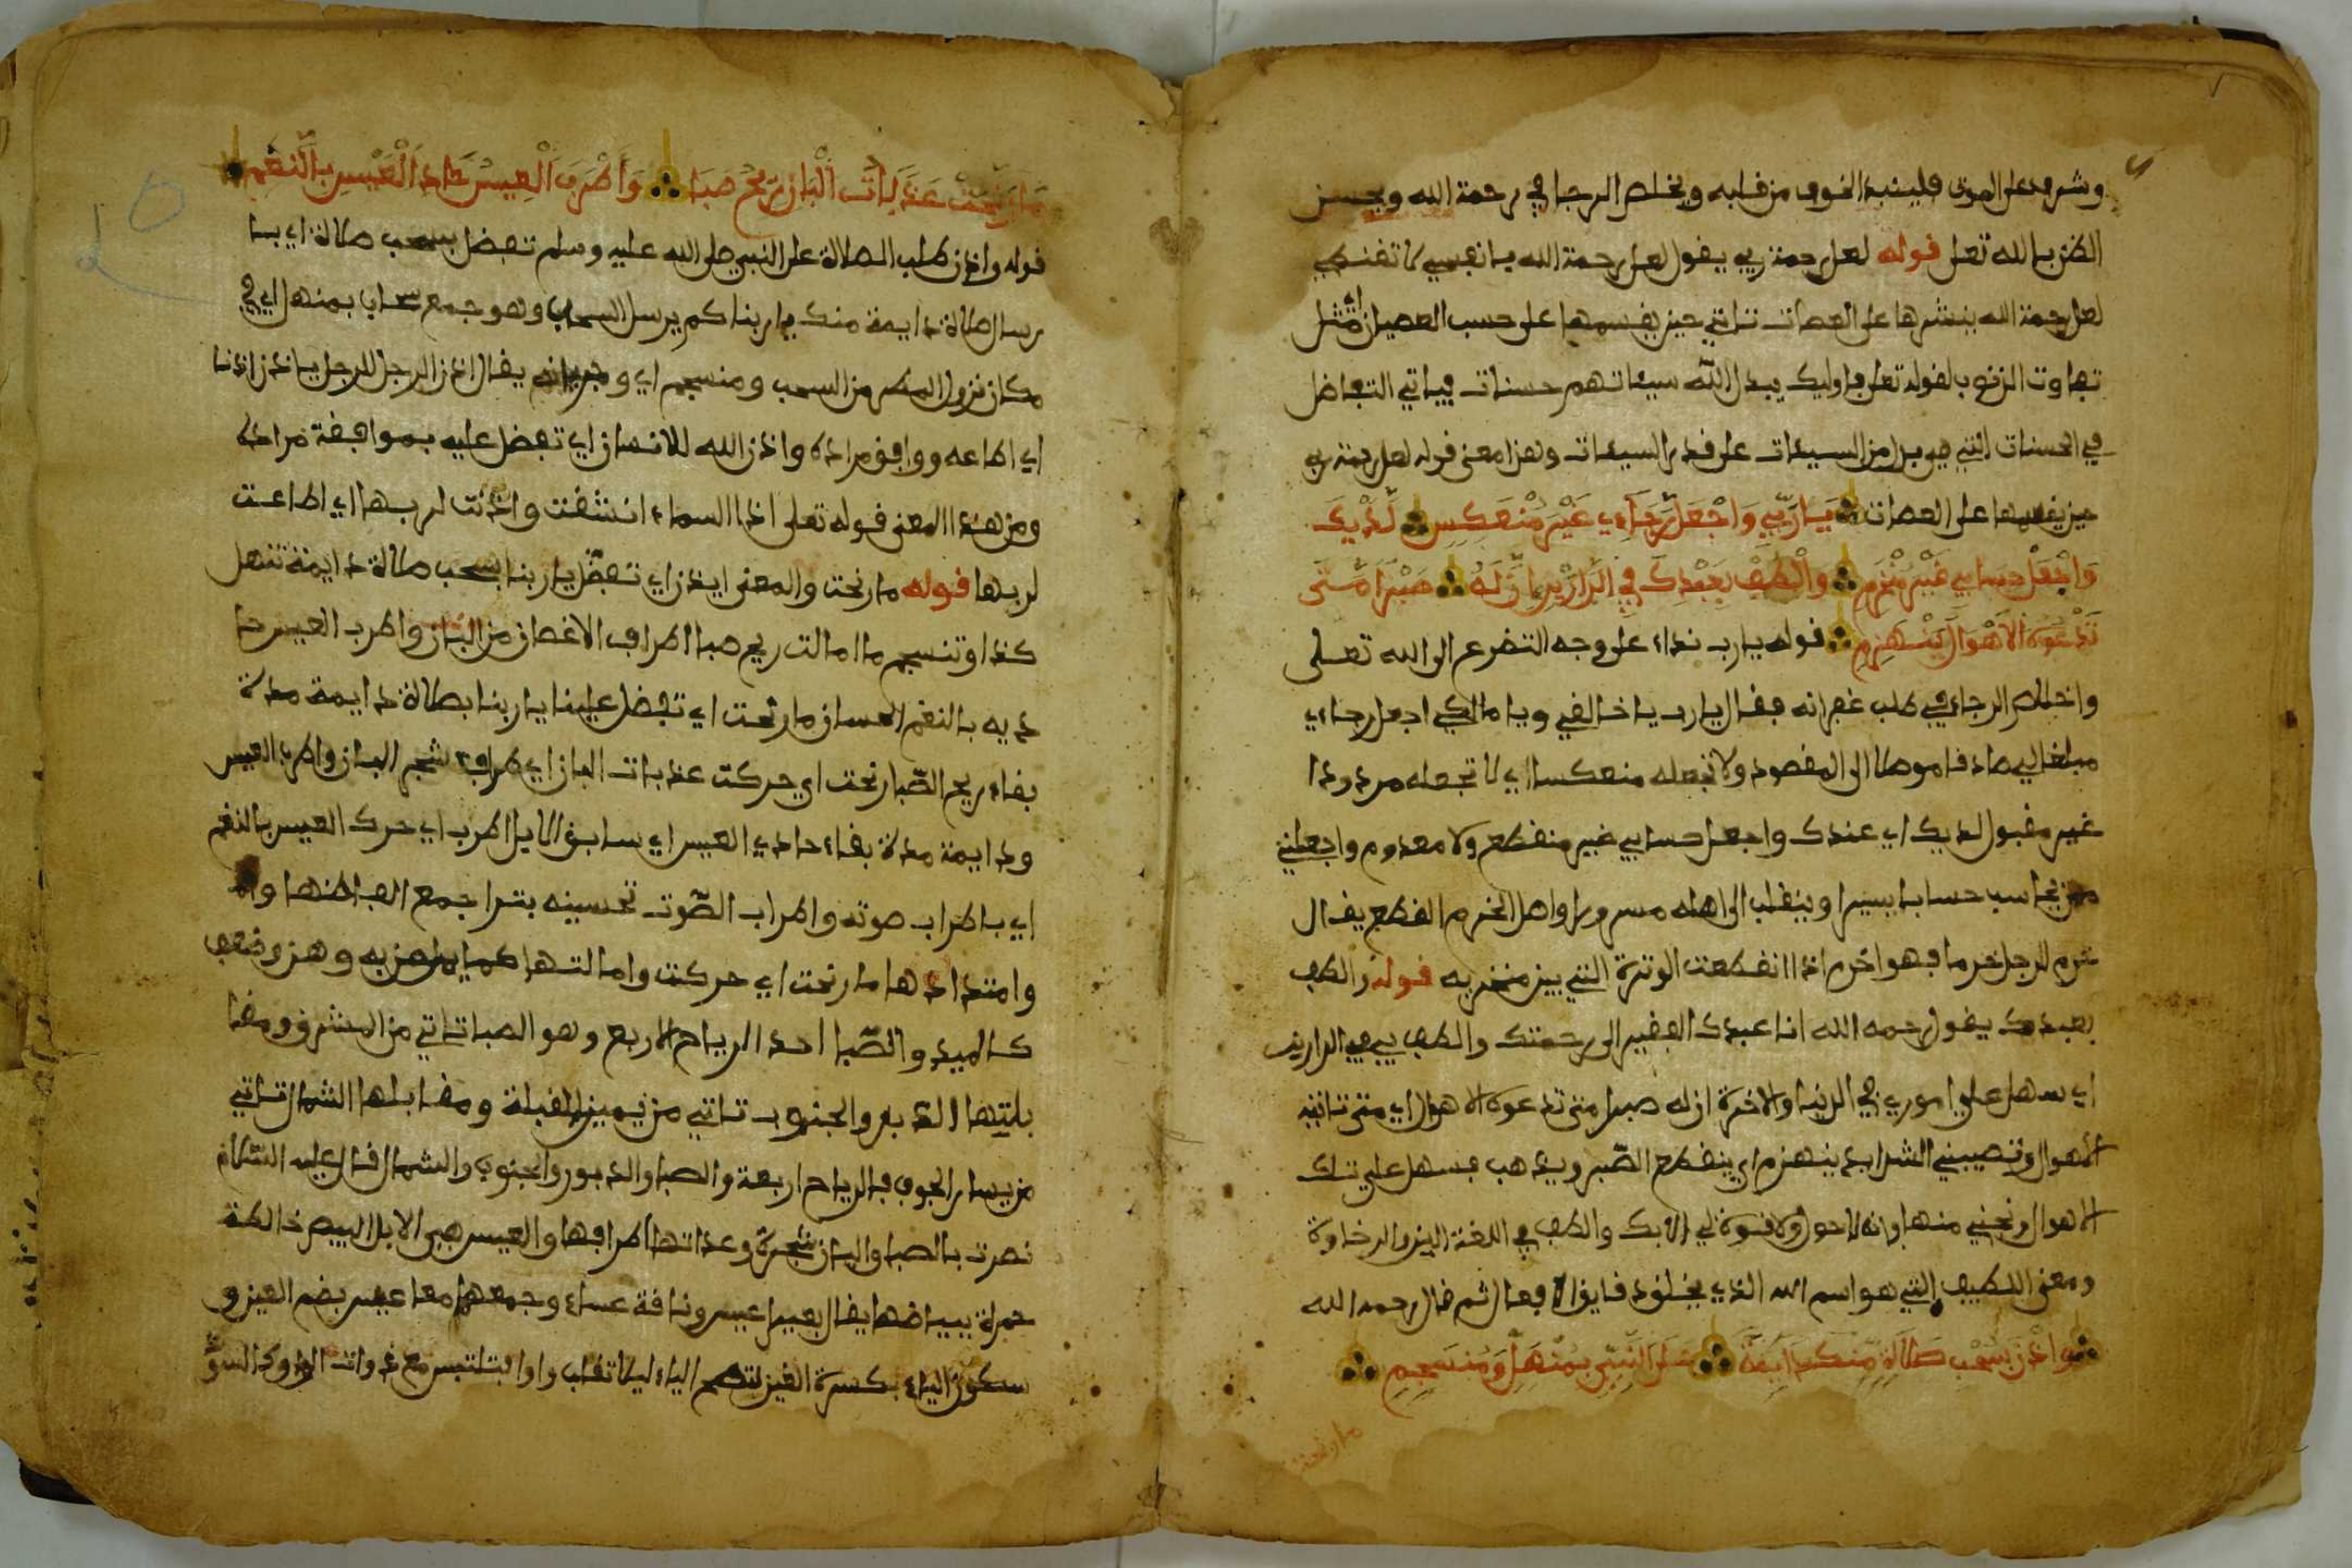 وشرف على الموت فلينبذ الخوف من قلبه ويخلص الرجا في رحمة الله ويحسن
الظن بالله تعلى قوله لعل رحمة ربي يقول لعل رحمة الله يا نفسي لا تقنطي
لعل رحمة الله ينشرها على العصات تاتي حين يقسمها على حسب العصيان اي مثل
تفاوت الذنوب لقوله تعلى فاوليك يبدل الله سيئاتهم حسنات فياتي التفاضل
في الحسنات التي هي بدل من السيئات على قدر السيئات وهذا معنى قوله لعل رحمة ربي
حين يقسمها على العصات يَا رَبِّي وَاجْعَلْ رَجَاءِي غَيْرَ مُنْعَكِسٍ لَدَيْكَ
وَاجْعَلْ حِسَابِي غَيْرَ مُنْخَرِمِ وَالْطُفْ بِعَبْدِكَ فِي الدَّارَيْنِ إِنَّ لَهُ صَبْرًا مَتَى
تَدْعُوهُ الْأَهْوَالُ يَنْهَزِمِ قوله يا رب نداء على وجه التضرع الى الله تعلى
واخلاص الرجاء في طلب غفرانه فقال يا رب يا خالقي ويا مالكي اجعل رجاءي
مبلغا لي صادقا موصلا الى المقصود ولا تجعله منعكسا اي لا تجعله مردودا
غير مقبول لديك اي عندك واجعل حسابي غير منقطع ولا معدوم واجعلني
ممن يحاسب حسابا يسيرا وينقلب الى اهله مسرورا واصل الخرم القطع يقال
خرم الرجل خرما فهو اخرم اذا انقطعت الوترة التي بين منخريه قوله والطف
بعبدك يقول رحمه الله انا عبدك الفقير الى رحمتك والطف بي في الدارين
اي سهل علي اموري في الدنيا والاخرة ان له صبرا متى تدعوه الاهوال اي متى تاتيه
الاهوال وتصيبني الشدايد ينهزم اي ينقطع الصبر ويذهب فسهل علي تلك
الاهوال ونجني منها فانه لا حول ولا قوة لي الا بك والطف في اللغة اللين والرخاوة
ومعنى اللطيف التي هو اسم الله الذي يخلق دقايق الافعال ثم قال رحمه الله
وَاذَنْ لِسُحْبِ صَلَاةٍ مِنْكَ دَايِمَةً عَلَى النَّبِيِّ بِمُنْهَلٍّ وَمُنْسَجِمِ
ما رنحت
مَا رَنَّحَتْ عَذَبَاتِ الْبَانِ رِيحُ صَبَا وَأَطْرَبَ الْعِيسَ حَادِ الْعِيسِ بِالنَّغَمِ
قوله واذن طلب الصلاة على النبي صلى الله عليه وسلم تفضل بسحب صلاة اي با
رسال صلاة دايمة منك يا ربنا كم يرسل السحاب وهو جمع سحاب بمنهل اي في
مكان نزول المطر من السحب ومنسجم اي وجريانه يقال اذن الرجل للرجل ياذن اذنا
اي اطاعه ووافق مراده واذن الله للانسان اي تفضل عليه بموافقة مراده
ومن هذا المعنى قوله تعلى اذا السماء انشقت واذنت لربها اي اطاعت
لربها قوله ما رنحت والمعنى ايذن اي تفضل يا ربنا بسحب صلاة دايمة تنهل
كذا وتنسجم ما امالت ريح صبا اطراف الاغصان من البان واطرب العيس حا
ديه بالنغم الحسان ما رنحت اي تفضل علينا يا ربنا بصلاة دايمة مدة
بقاء ريح الصبا رنحت اي حركت عذبات البان اي اطراف شجر البان واطرب العيس
ودايمة مدة بقاء حادي العيس اي سايق الابل اطرب اي حرك العيس بالنغم
اي باطراب صوته واطراب الصوت تحسينه
وامتدادها ما رنحت اي حركت وامالتها
كالميد والصبا احد الرياح الاربع وهو الصبا تاتي من المشرق ومقا
بلتها الدبور والجنوب تاتي من يمين القبلة ومقابلها الشمال تاتي
من يسار الجوف فالرياح اربعة والصبا والدبور والجنوب والشمال قال عليه السلام
نصرت بالصبا والبان شجرة وعذاتها اطرافها والعيس هي الابل البيض خالطة
حمرة ببياضها يقال بعير اعيس وناقة عساء وجمعهما معا عيس بضم العين و
سكون الياء بكسرة العين لتصح الياء ليلا تقلب واوا فتلتبس مع ذوات الواو